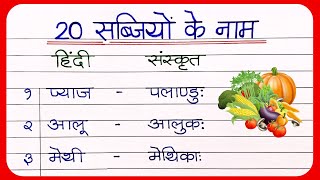 20 सब्जियों के नाम
हिंदी संस्कृत
१ प्याज - पलाण्डुः
२ आलू - आलुकः
३ मेथी - मेथिकाः